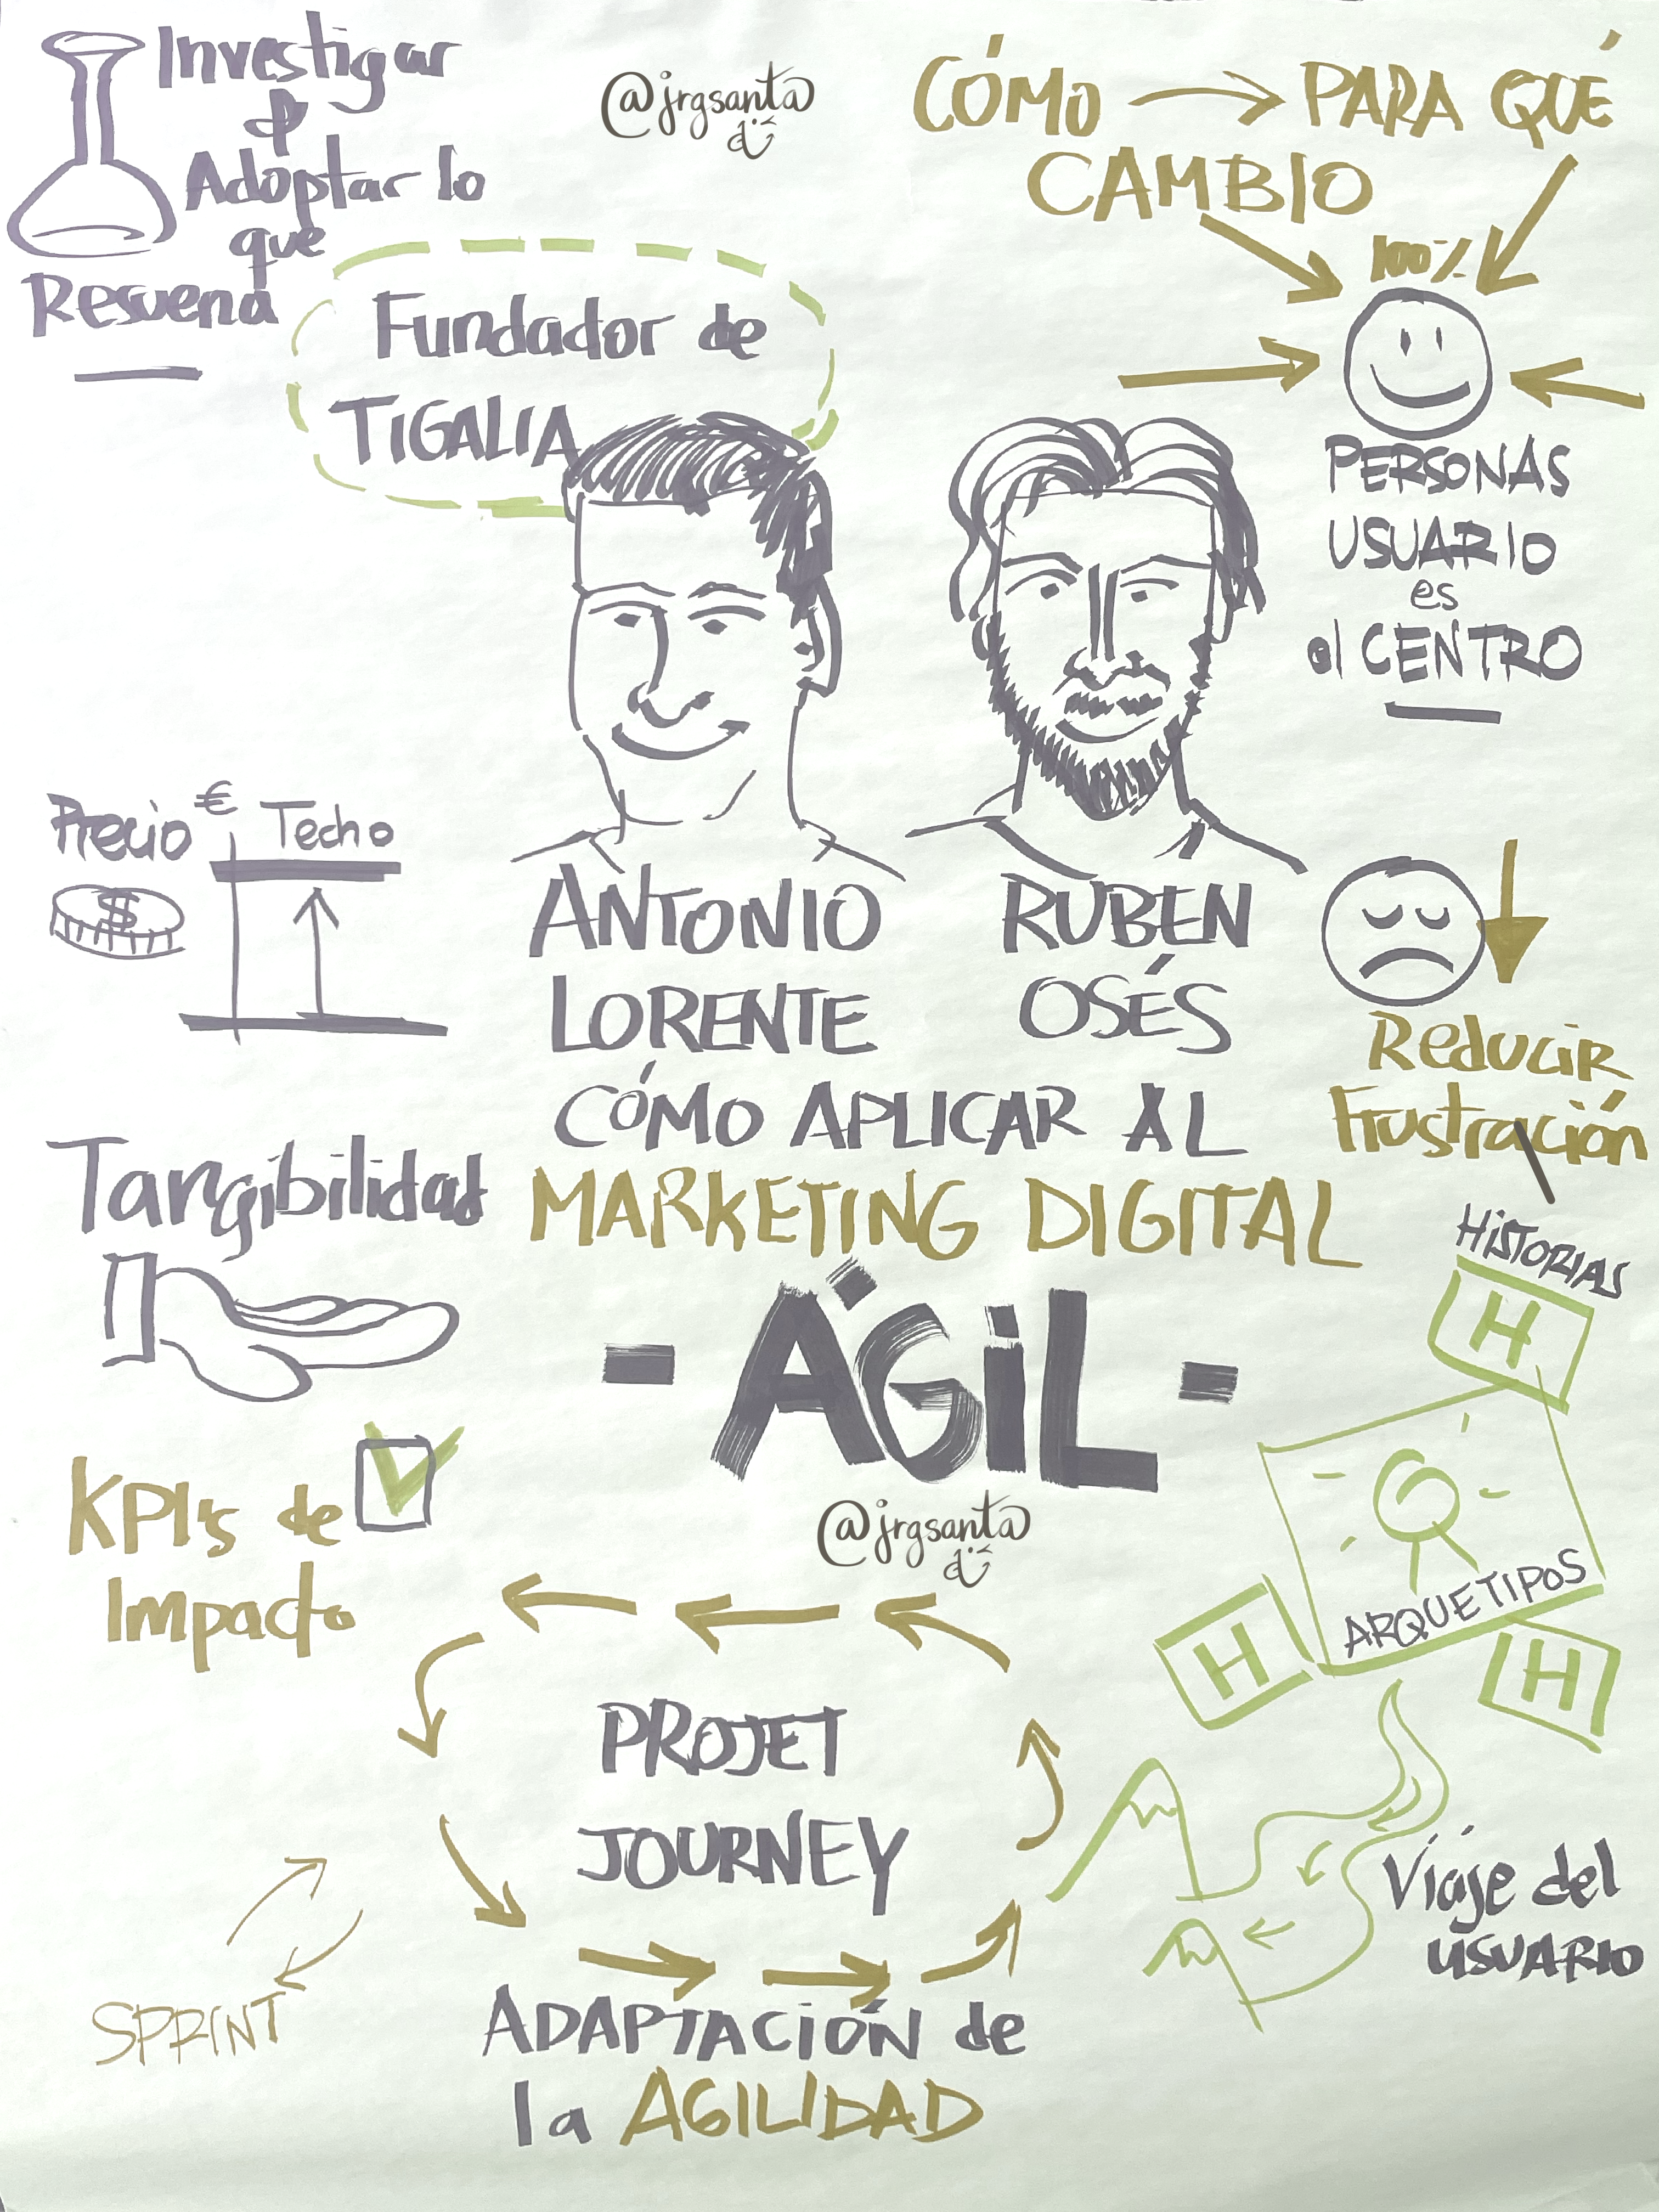 Investigar
&
Adoptar lo
que
Resuena
@jrgsanta
CÓMO → PARA QUÉ
CAMBIO
100%
Fundador de
TIGALIA
PERSONAS
USUARIO
es
el CENTRO
Precio € Techo
$
ANTONIO
LORENTE
RUBEN
OSÉS
Reducir
Frustración
CÓMO APLICAR AL
MARKETING DIGITAL
- ÁGIL -
@jrgsanta
Tangibilidad
KPI's de
Impacto
HISTORIAS
H
ARQUETIPOS
H
H
PROJET
JOURNEY
Viaje del
USUARIO
SPRINT
ADAPTACIÓN de
la AGILIDAD